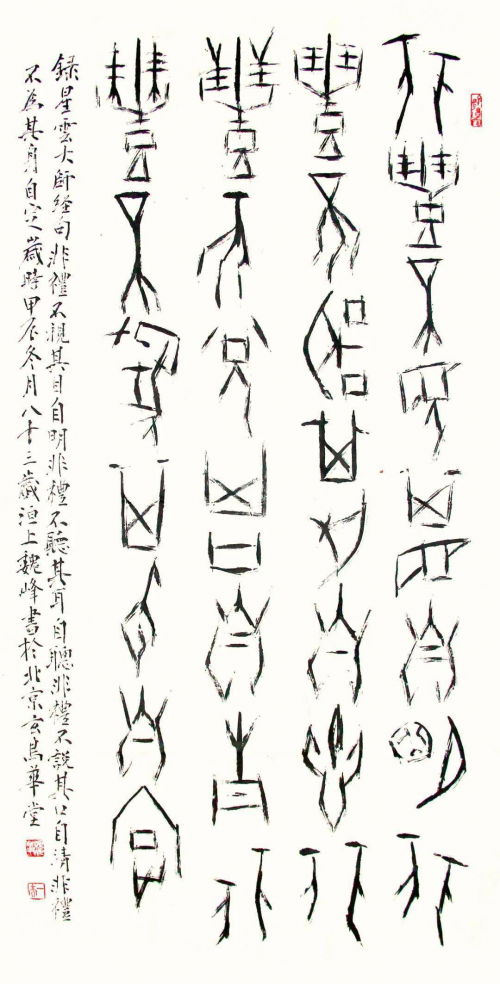 非禮不視其目自明非
禮不聽其耳自聰非
禮不說其口自清非
禮不為其身自定
録星雲大師経句非禮不視其目自明非禮不聽其耳自聰非禮不說其口自清非禮
不為其身自定歲時甲辰冬月八十三歲洹上魏峰書於北京玄鳥華堂